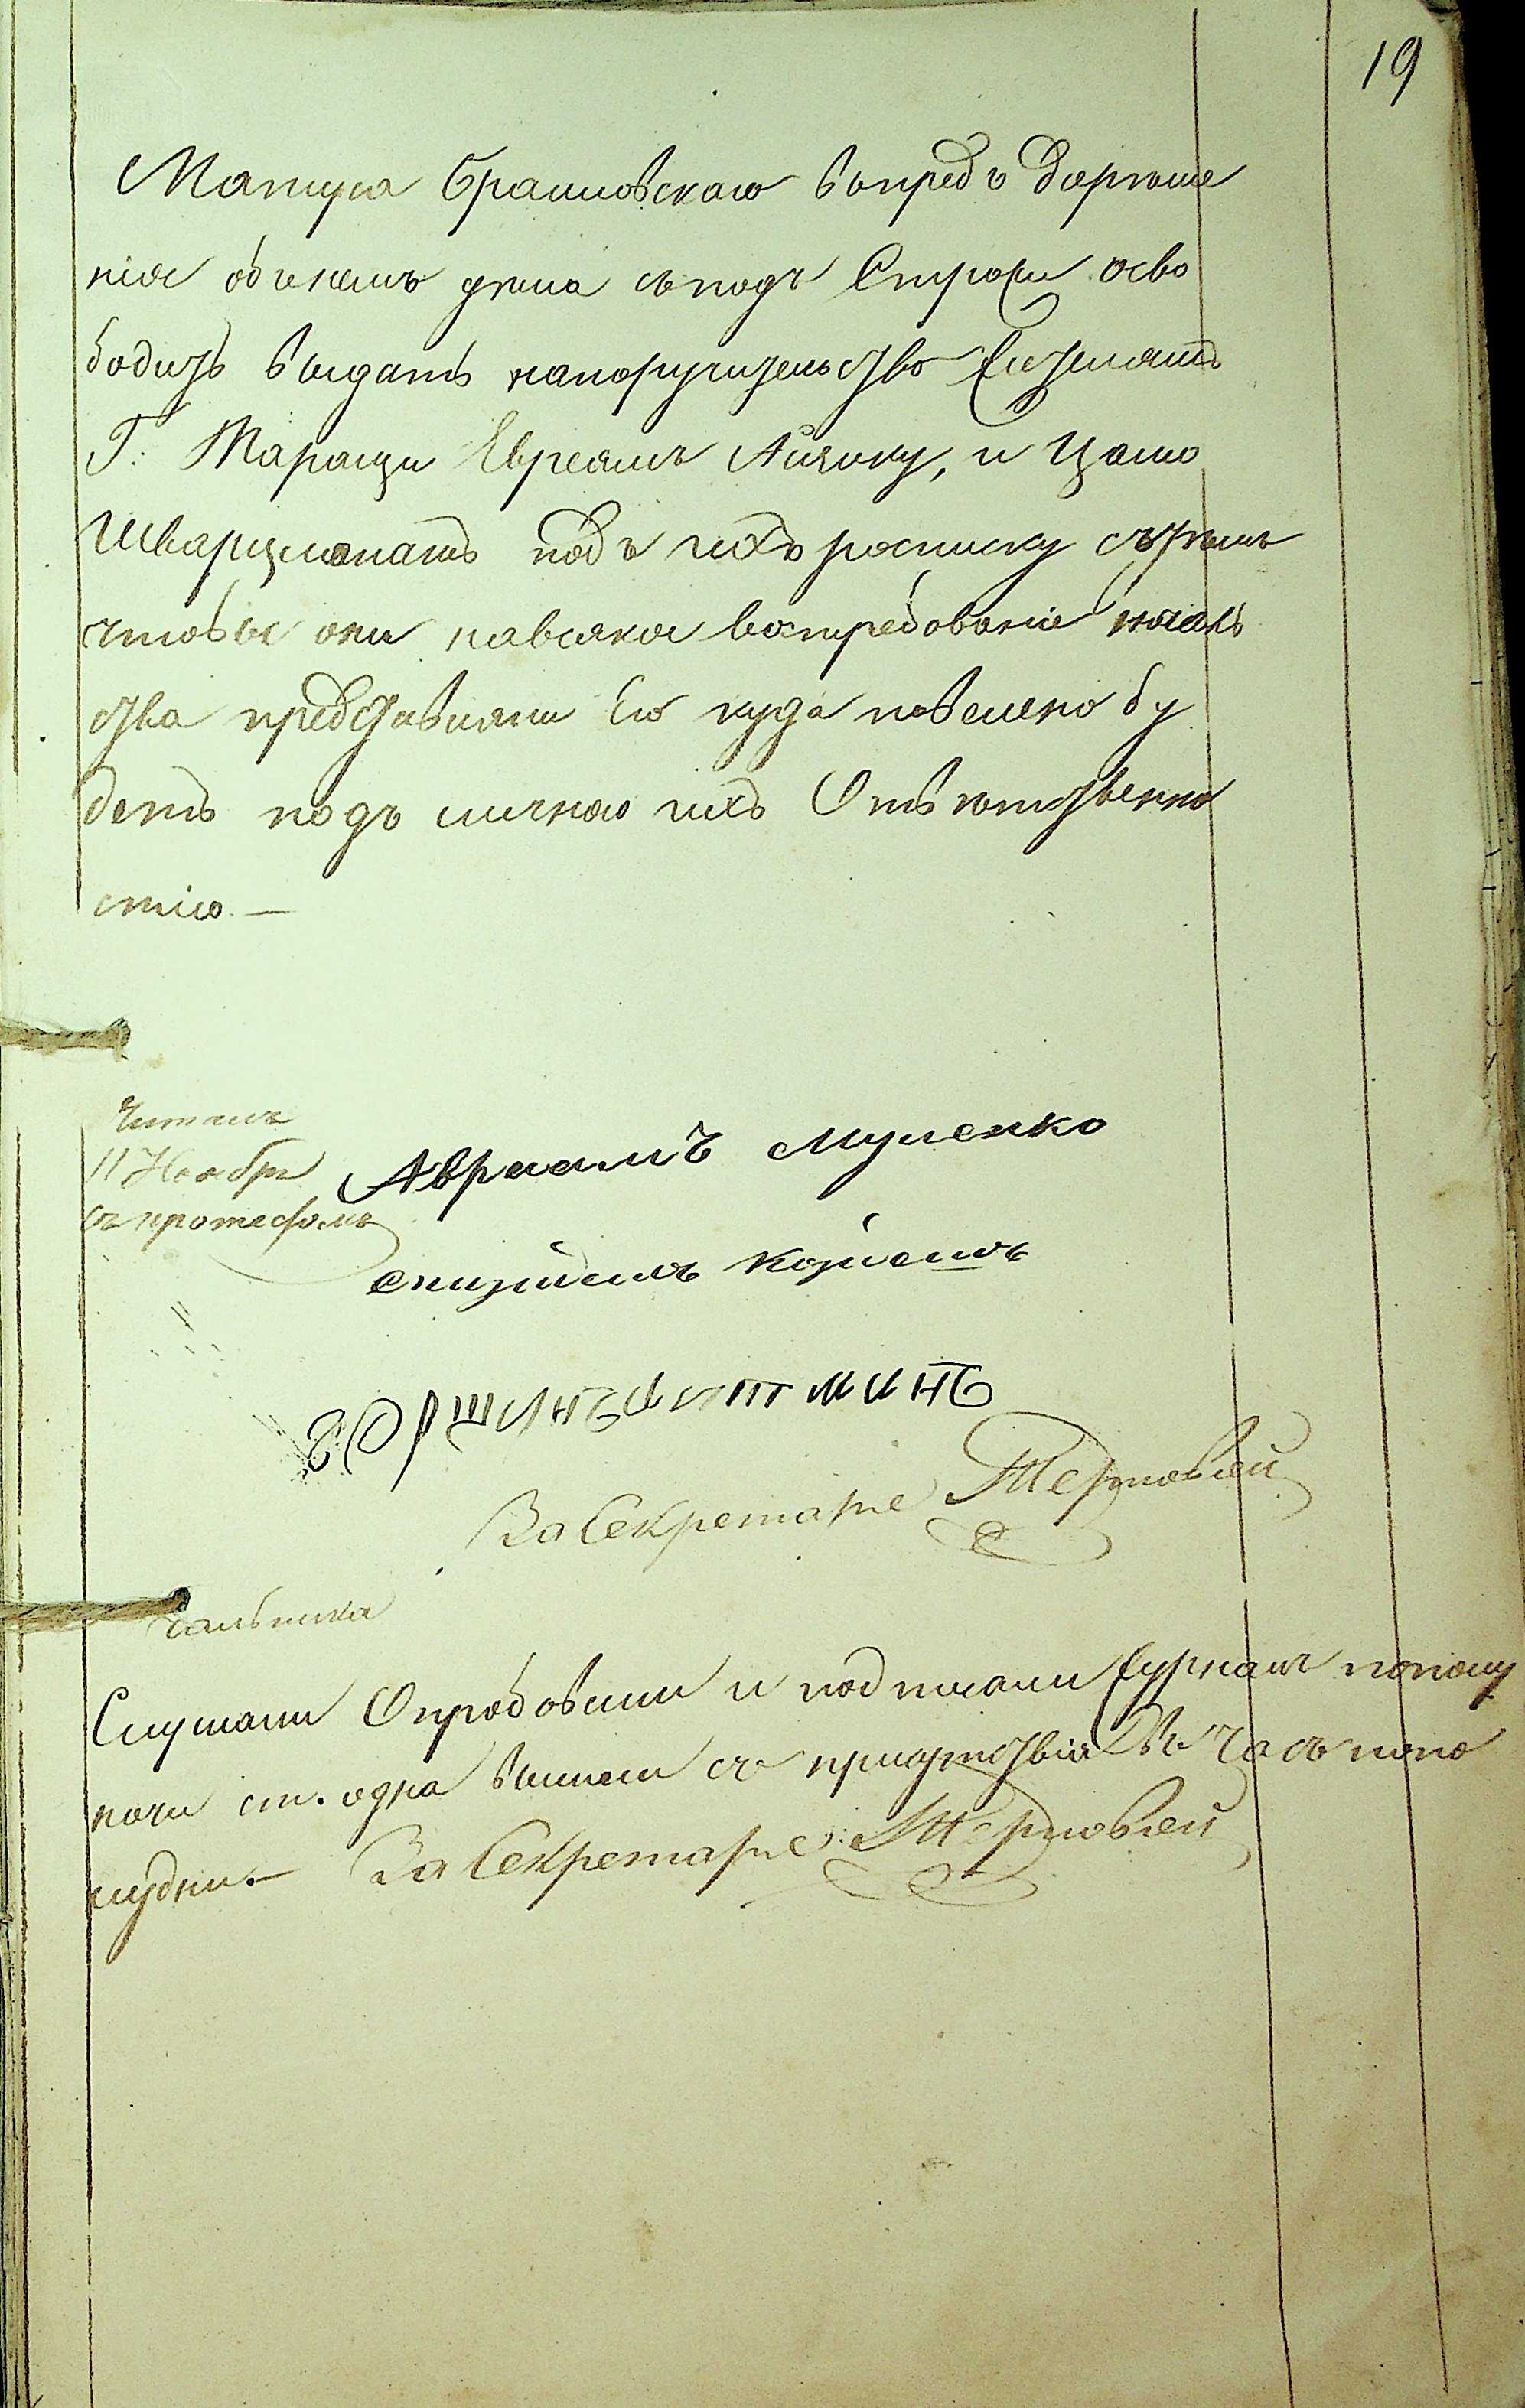 19
Матуса Браиловскаго впредъ дореше
нія объ немъ дела съподъ Стражи осво
бодить выдать напоручительство
Г. Таращи Евреямъ Айзику, и
Шварцманамъ подъ ихъ росписку стѣмъ
чтобы они навсякое востребованіе началь
ства представляли Его куда повелено бу
детъ подъ личною ихъ Ответственно
стію.—
Читалъ
11 Ноября
съ протестомъ
Авраамъ Муленко
За Секретаря Терновый
Слушали Опробовали и подписали Журналъ по
ст. одна вышли съ присутствія въ Часъ попо
лудни.— За Секретаря Терновый